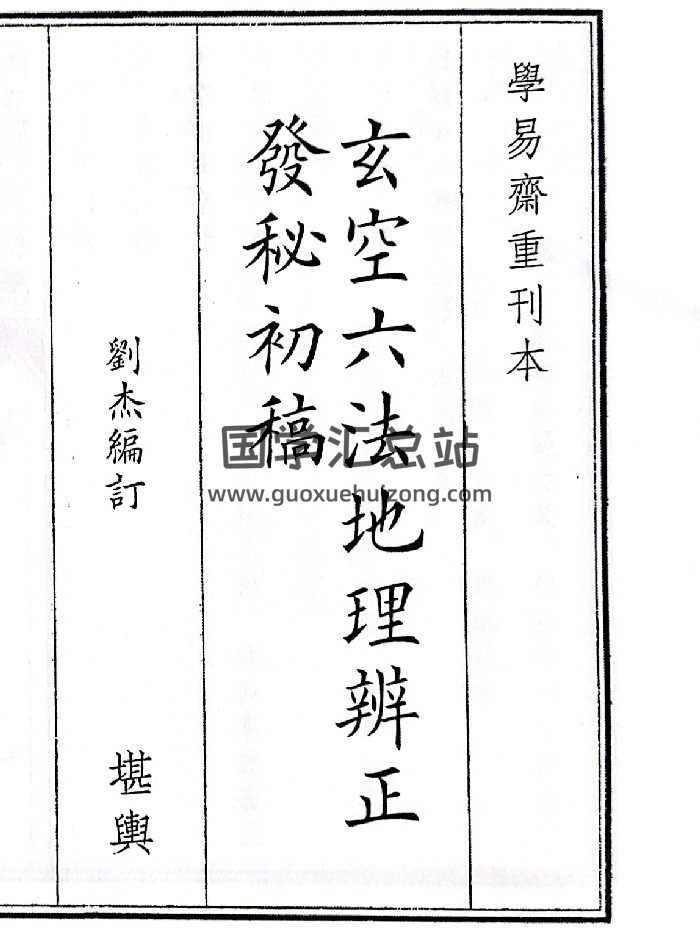 學易齋重刊本
玄空六法地理辨正
發秘初稿
劉杰編訂
堪輿
国学汇总站
www.guoxuehuizong.com